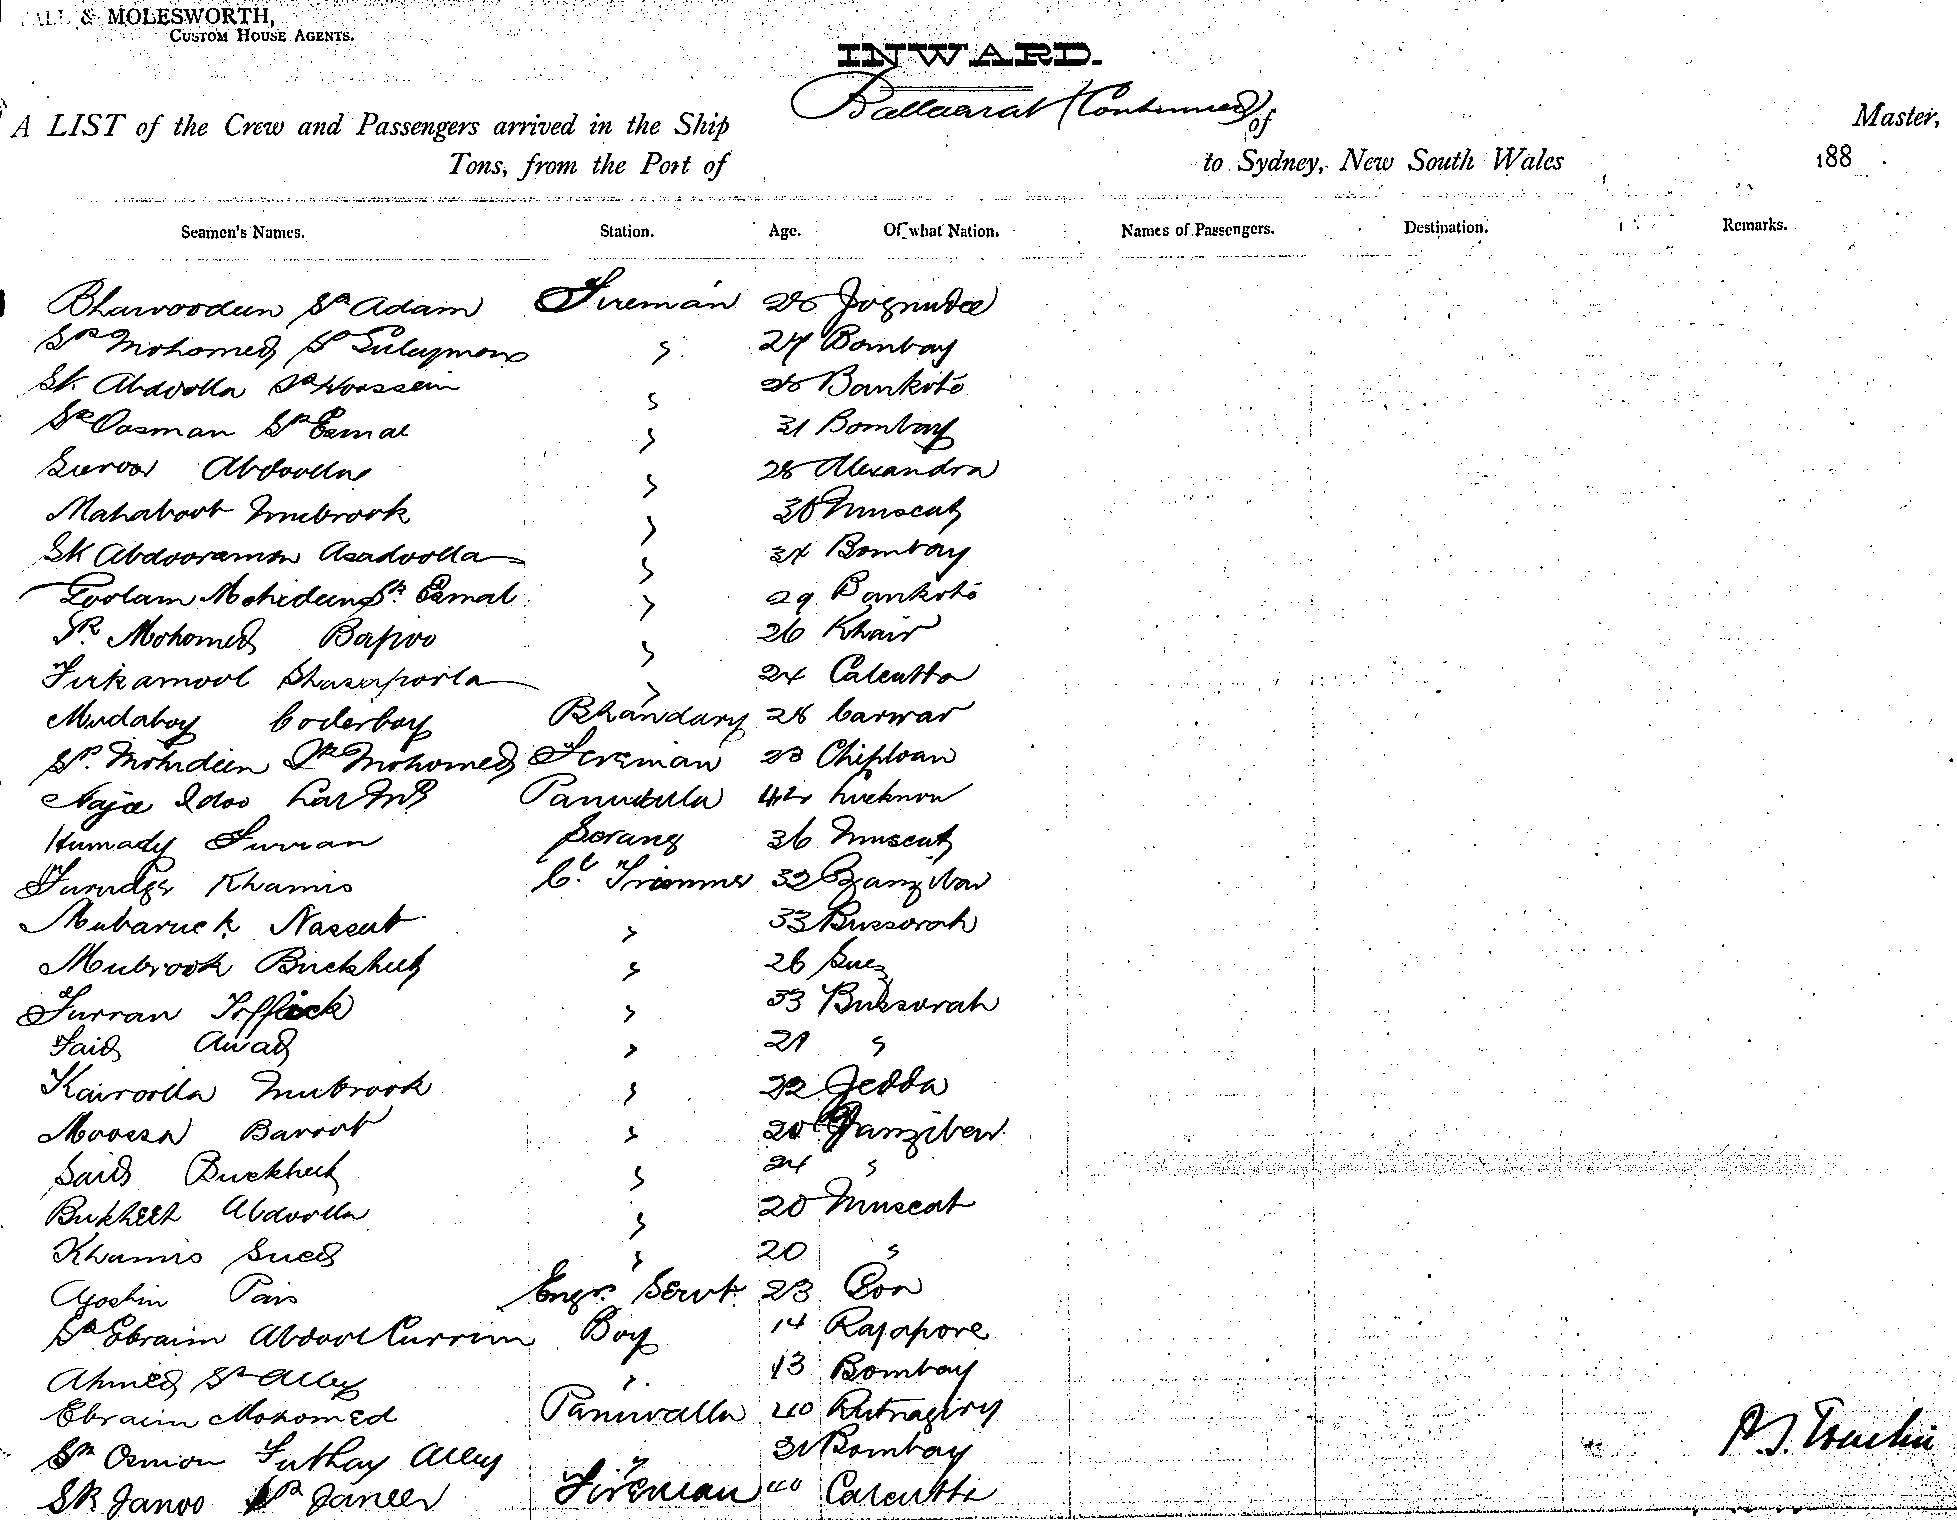 ALL & MOLESWORTH,
CUSTOM HOUSE AGENTS.
INWARD.
A LIST of the Crew and Passengers arrived in the Ship Ballaarat (Continued) of Master,
Tons, from the Port of to Sydney, New South Wales 188 .
Seamen's Names. Station. Age. Of what Nation. Names of Passengers. Destination. Remarks.
Bhawoodeen Sk Adam Fireman 26
Sk Mohomed Sk Suleymon " 27 Bombay
Sk Abdoolla Sk Hoossein " 28 Bankote
Sk Oosman Sk Esmal " 31 Bombay
Suroor Abdoolla " 28 Alexandra
Mahaboot Mubrook " 38 Muscat
Sk Abdooramon Asadoolla " 34 Bombay
Goolam Mohideen Sk Esmal " 29 Bankote
Sk Mohomed Bapoo " 26 Khair
Shasaporla " 24 Calcutta
Mudaboy Coderboy Bhandary 28 Carwar
Sk Mohideen Sk Mohomed Fireman 23 Chiploan
Idoo 42 Lucknow
Humady Furran Serang 36 Muscat
Khamis C. Trimmer 32 Zanzibar
Mubaruck Nasseeb " 33 Bussorah
Mubrook Buckheet " 26 Suez
Furran Toffick " 33 Bussorah
Said Awad " 21 "
Kairoolla Mubrook " 22 Jedda
Moossa Baroot " 20 Zanzibar
Said Buckheet " 24 "
Bukheet Abdoolla " 20 Muscat
Khamis Sueed " 20 "
Pais Engr. Servt. 23 Goa
Sk Ebraim Abdool Currim Boy 14 Rajapore
Ahmed Sk Alley " 13 Bombay
Ebraim Mohomed Paniwalla 40 Rutnagiry
Sk Osmon Futhay Alley " 31 Bombay
Sk Janoo Sk Janeer Fireman 40 Calcutta